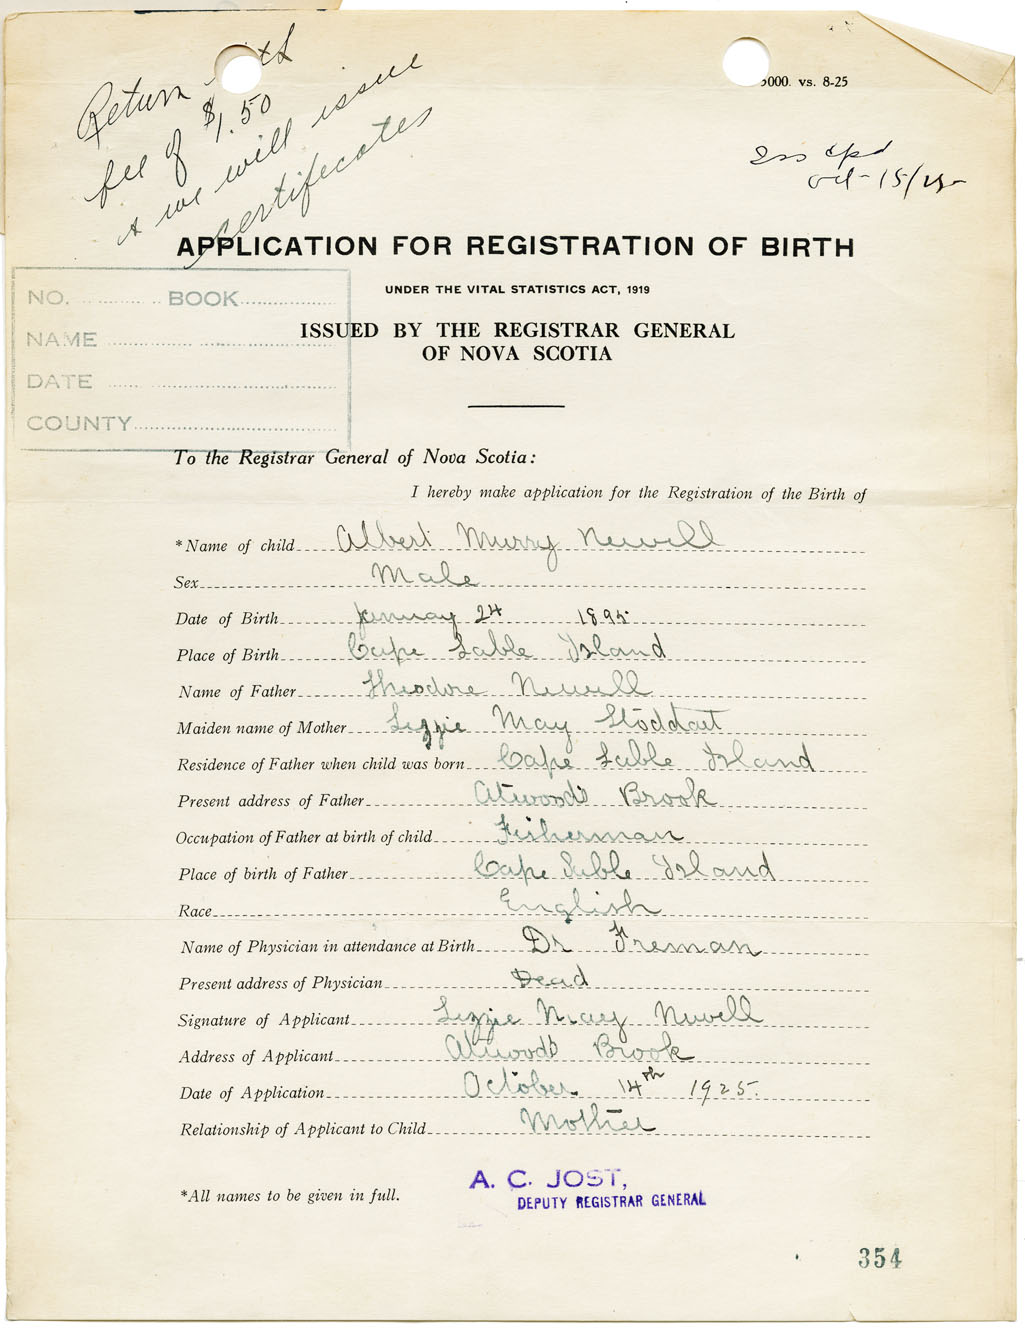 Return with
fee of $1.50
& we will issue
certificates
5000. vs. 8-25
Oct - 15/25
APPLICATION FOR REGISTRATION OF BIRTH
UNDER THE VITAL STATISTICS ACT, 1919
ISSUED BY THE REGISTRAR GENERAL
OF NOVA SCOTIA
NO. BOOK
NAME
DATE
COUNTY
To the Registrar General of Nova Scotia:
I hereby make application for the Registration of the Birth of
*Name of child Albert Murry Newell
Sex Male
Date of Birth January 24 1895
Place of Birth Cape Sable Island
Name of Father Theodore Newell
Maiden name of Mother Lizzie May Stoddart
Residence of Father when child was born Cape Sable Island
Present address of Father Atwood's Brook
Occupation of Father at birth of child Fisherman
Place of birth of Father Cape Sable Island
Race English
Name of Physician in attendance at Birth Dr Freman
Present address of Physician Dead
Signature of Applicant Lizzie May Newell
Address of Applicant Atwood's Brook
Date of Application October 14th 1925.
Relationship of Applicant to Child Mother
*All names to be given in full.
A. C. JOST,
DEPUTY REGISTRAR GENERAL
354